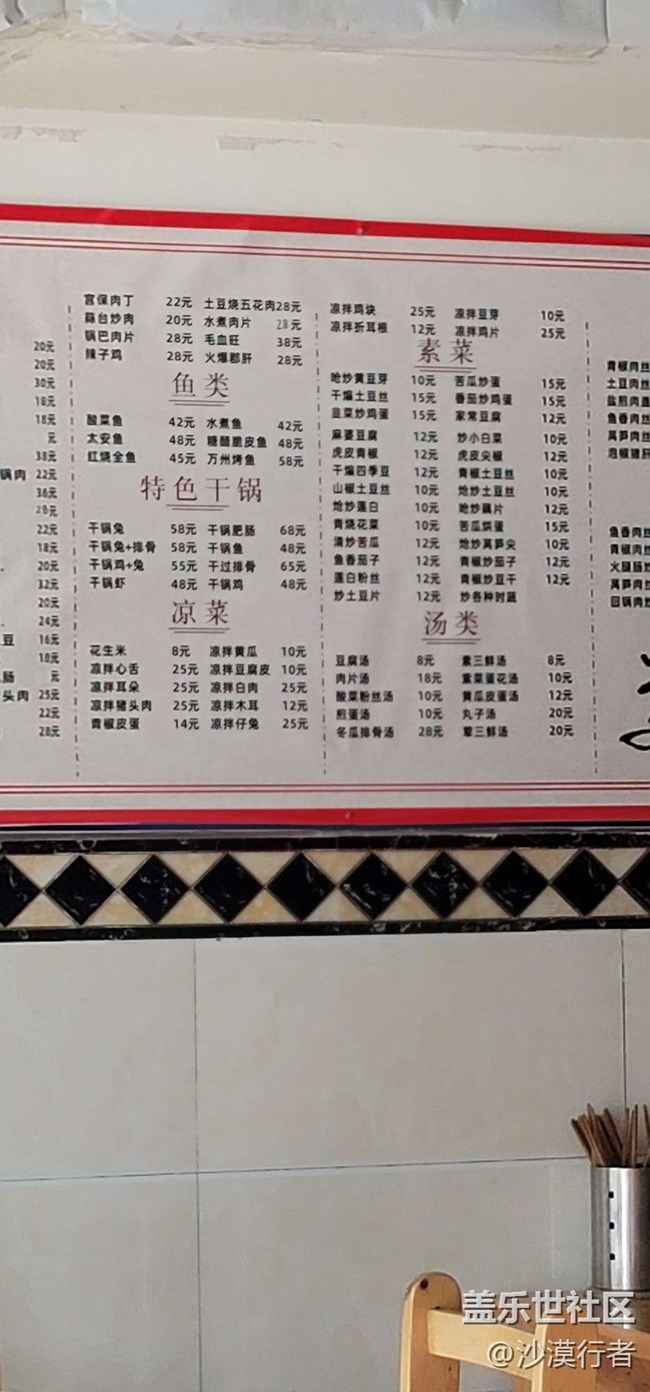 20元
20元
30元
18元
18元
元
38元
锅肉 22元
36元
28元
22元
18元
20元
32元
20元
24元
豆 16元
18元
肠 元
头肉 25元
22元
28元
宫保肉丁 22元 土豆烧五花肉28元
蒜台炒肉 20元 水煮肉片 28元
锅巴肉片 28元 毛血旺 38元
辣子鸡 28元 火爆郡肝 28元
鱼类
酸菜鱼 42元 水煮鱼 42元
太安鱼 48元 糖醋脆皮鱼 48元
红烧全鱼 45元 万州烤鱼 58元
特色干锅
干锅兔 58元 干锅肥肠 68元
干锅兔+排骨 58元 干锅鱼 48元
干锅鸡+兔 55元 干过排骨 65元
干锅虾 48元 干锅鸡 48元
凉菜
花生米 8元 凉拌黄瓜 10元
凉拌心舌 25元 凉拌豆腐皮 10元
凉拌耳朵 25元 凉拌白肉 25元
凉拌猪头肉 25元 凉拌木耳 12元
青椒皮蛋 14元 凉拌仔兔 25元
凉拌鸡块 25元 凉拌豆芽 10元
凉拌折耳根 12元 凉拌鸡片 25元
素菜
炝炒黄豆芽 10元 苦瓜炒蛋 15元
干煸土豆丝 15元 番茄炒鸡蛋 15元
韭菜炒鸡蛋 15元 家常豆腐 12元
麻婆豆腐 12元 炒小白菜 10元
虎皮青椒 12元 虎皮尖椒 12元
干煸四季豆 12元 青椒土豆丝 10元
山椒土豆丝 10元 炝炒土豆丝 10元
炝炒莲白 10元 炝炒藕片 12元
青烧花菜 10元 苦瓜烘蛋 15元
清炒苦瓜 12元 炝炒莴笋尖 10元
鱼香茄子 12元 青椒炒茄子 12元
莲白粉丝 12元 青椒炒豆干 12元
炒土豆片 12元 炒各种时蔬
汤类
豆腐汤 8元 素三鲜汤 8元
肉片汤 18元 紫菜蛋花汤 10元
酸菜粉丝汤 10元 黄瓜皮蛋汤 12元
煎蛋汤 10元 丸子汤 20元
冬瓜排骨汤 28元 荤三鲜汤 20元
青椒肉丝
土豆肉丝
盐煎肉
鱼香肉丝
莴笋肉丝
泡椒猪肝
鱼香肉丝
青椒肉丝
火腿肠炒
莴笋肉丝
回锅肉炒
盖乐世社区
@沙漠行者